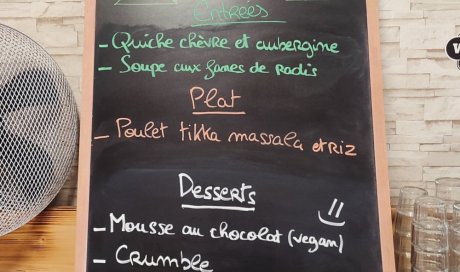 Entrées
- Quiche chèvre et aubergine
- Soupe aux fanes de radis
Plat
- Poulet tikka massala et RIZ
Desserts
- Mousse au chocolat (vegan)
- Crumble